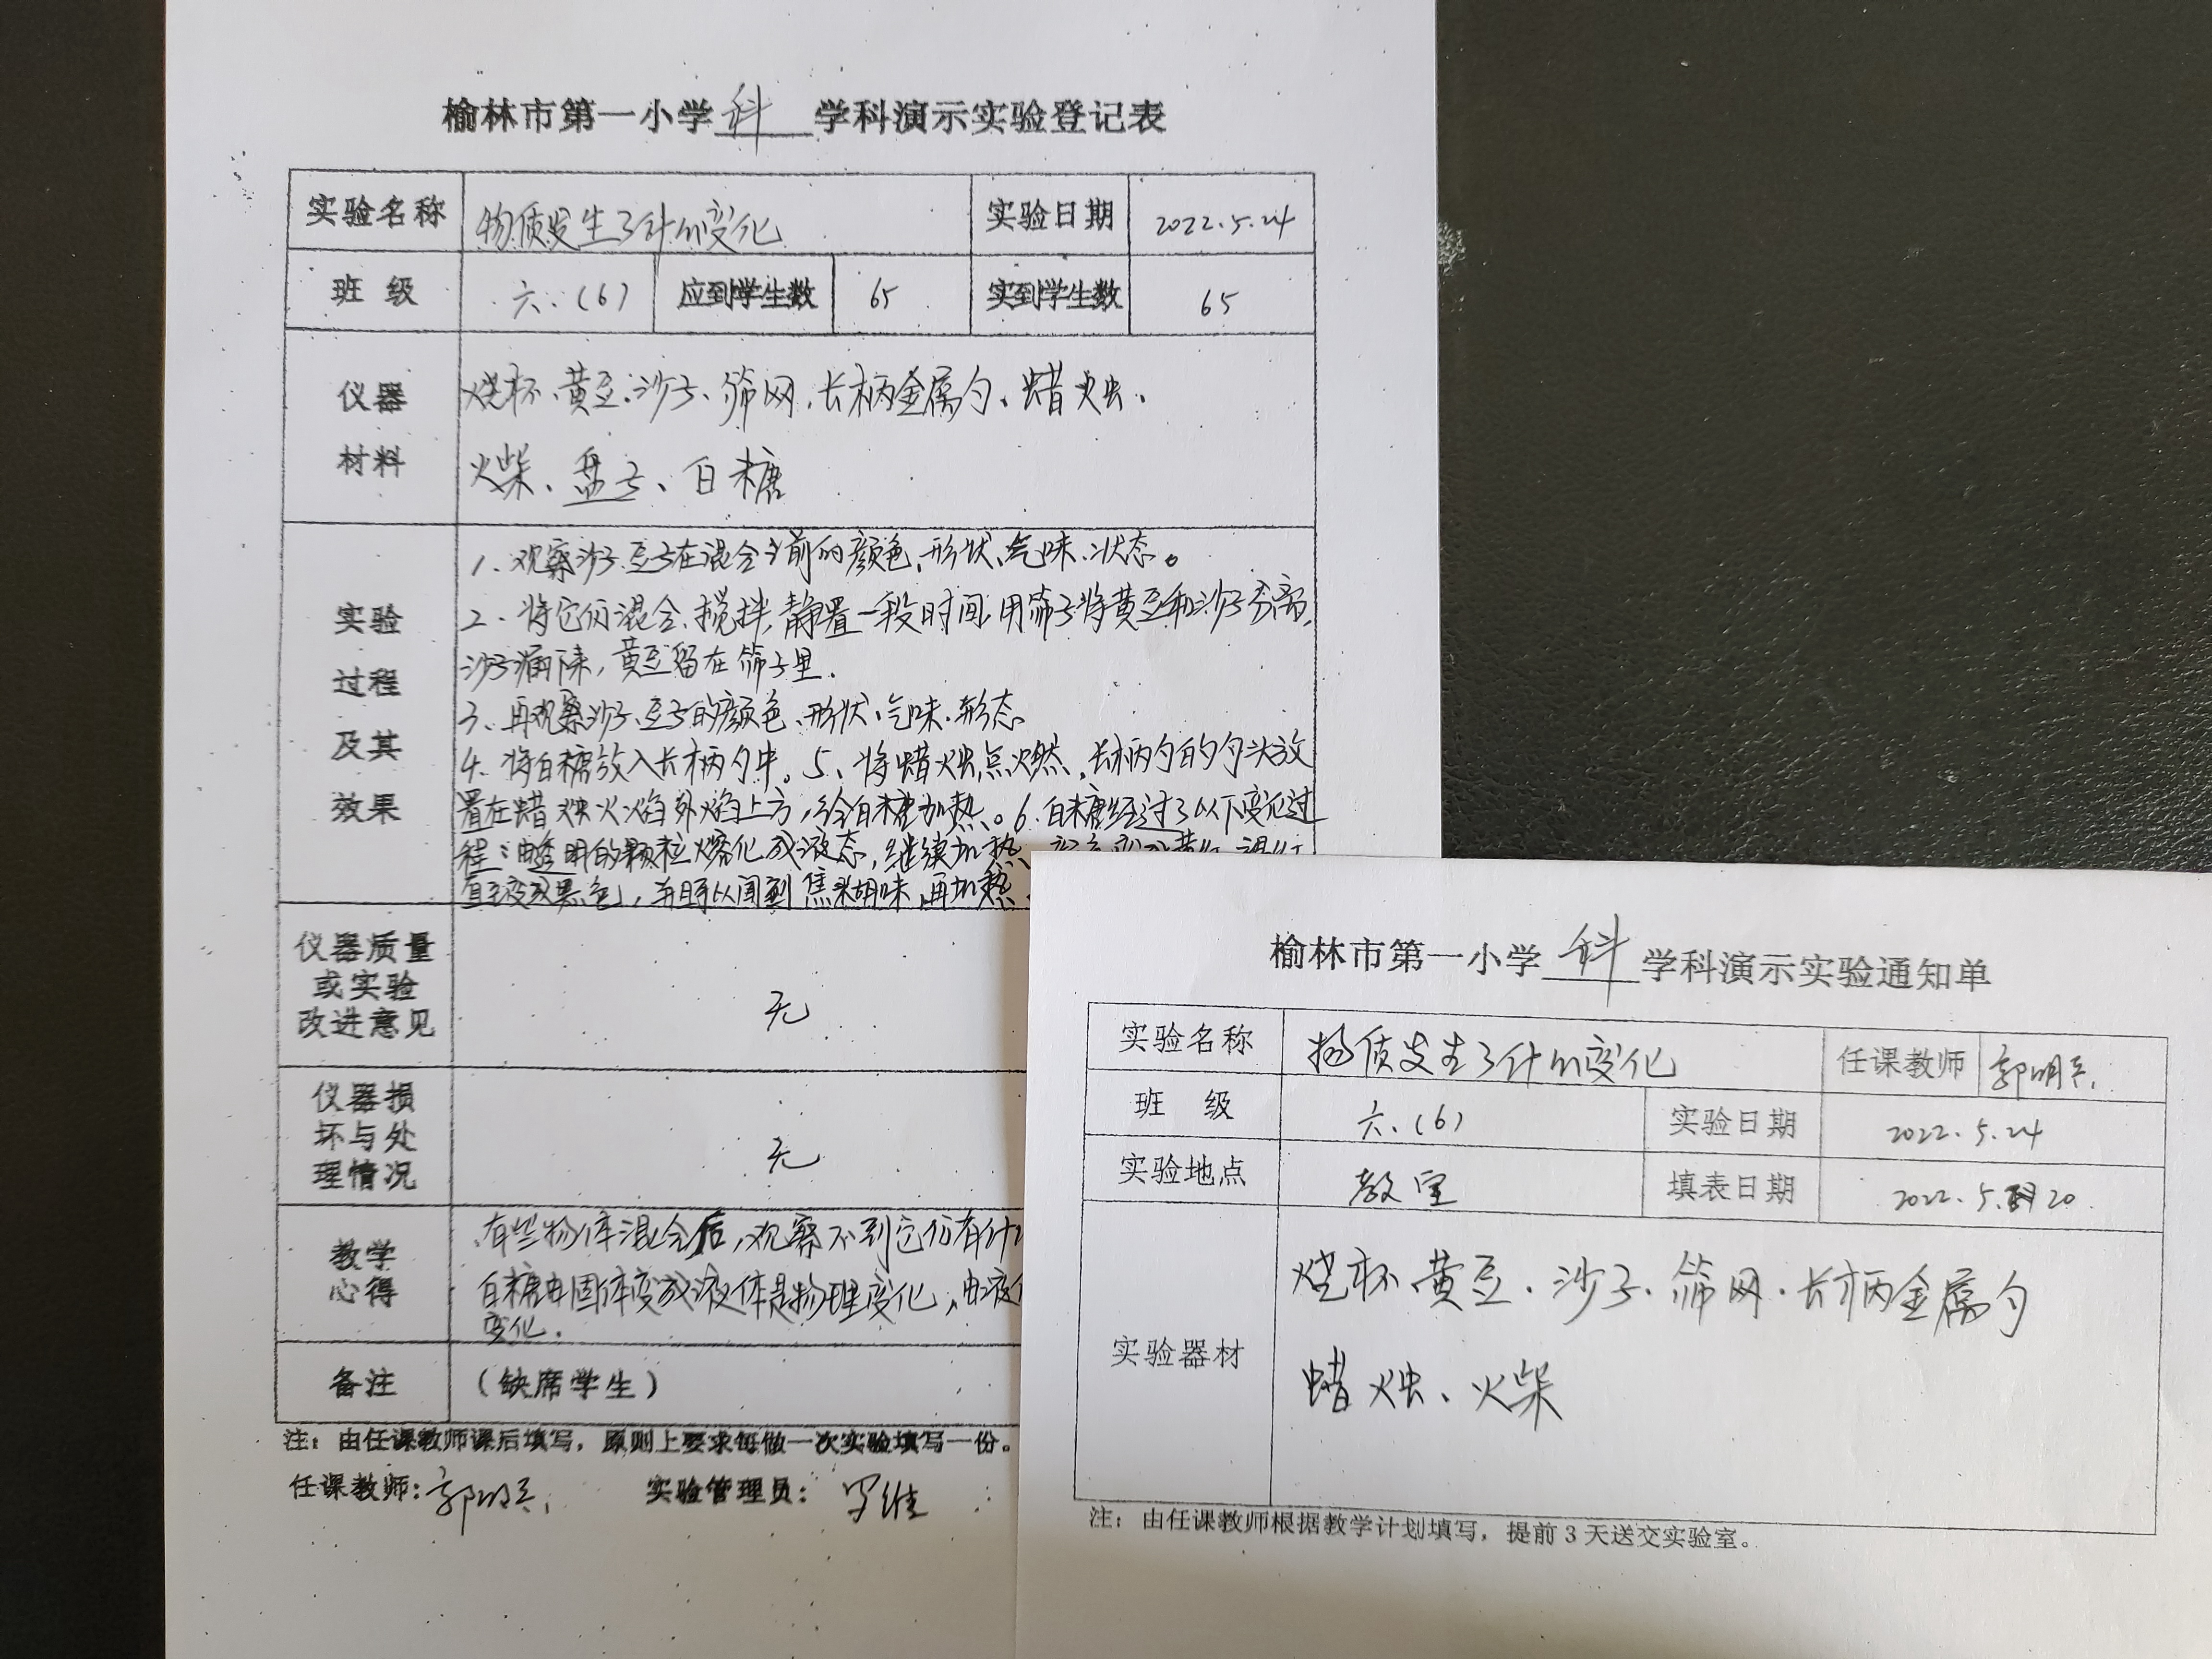 榆林市第一小学科学科演示实验登记表
实验名称 物质发生了什么变化 实验日期 2022.5.24
班 级 六.(6) 应到学生数 65 实到学生数 65
仪器 烧杯、黄豆、沙子、筛网、长柄金属勺、蜡烛、
材料 火柴、盘子、白糖
1、观察沙子、豆子在混合之前的颜色、形状、气味、状态。
实验 2、将它们混合、搅拌,静置一段时间,用筛子将黄豆和沙子分离,
沙子漏下来,黄豆留在筛子里.
过程
3、再观察沙子、豆子的颜色、形状、气味、形态
及其 4、将白糖放入长柄勺中。5、将蜡烛点燃,长柄勺的勺头放
效果 置在蜡烛火焰外焰上方,给白糖加热。6.白糖经过了以下变化过
程:由透明的颗粒熔化成液态,继续加热、
直至变成黑色,并且可以闻到焦糊味,再加热
仪器质量
或实验
改进意见 无
仪器损
坏与处
理情况 无
教学 有些物体混合后,观察不到它们有什
心得 白糖由固体变成液体是物理变化,由液
变化.
备注 (缺席学生)
注:由任课教师课后填写,原则上要求每做一次实验填写一份。
任课教师:郭明 实验管理员:
榆林市第一小学科学科演示实验通知单
实验名称 物质发生了什么变化 任课教师 郭明
班 级 六.(6) 实验日期 2022.5.24
实验地点 教室 填表日期 2022.5.20
烧杯 黄豆.沙子.筛网.长柄金属勺
实验器材
蜡烛、火柴
注:由任课教师根据教学计划填写,提前3天送交实验室。